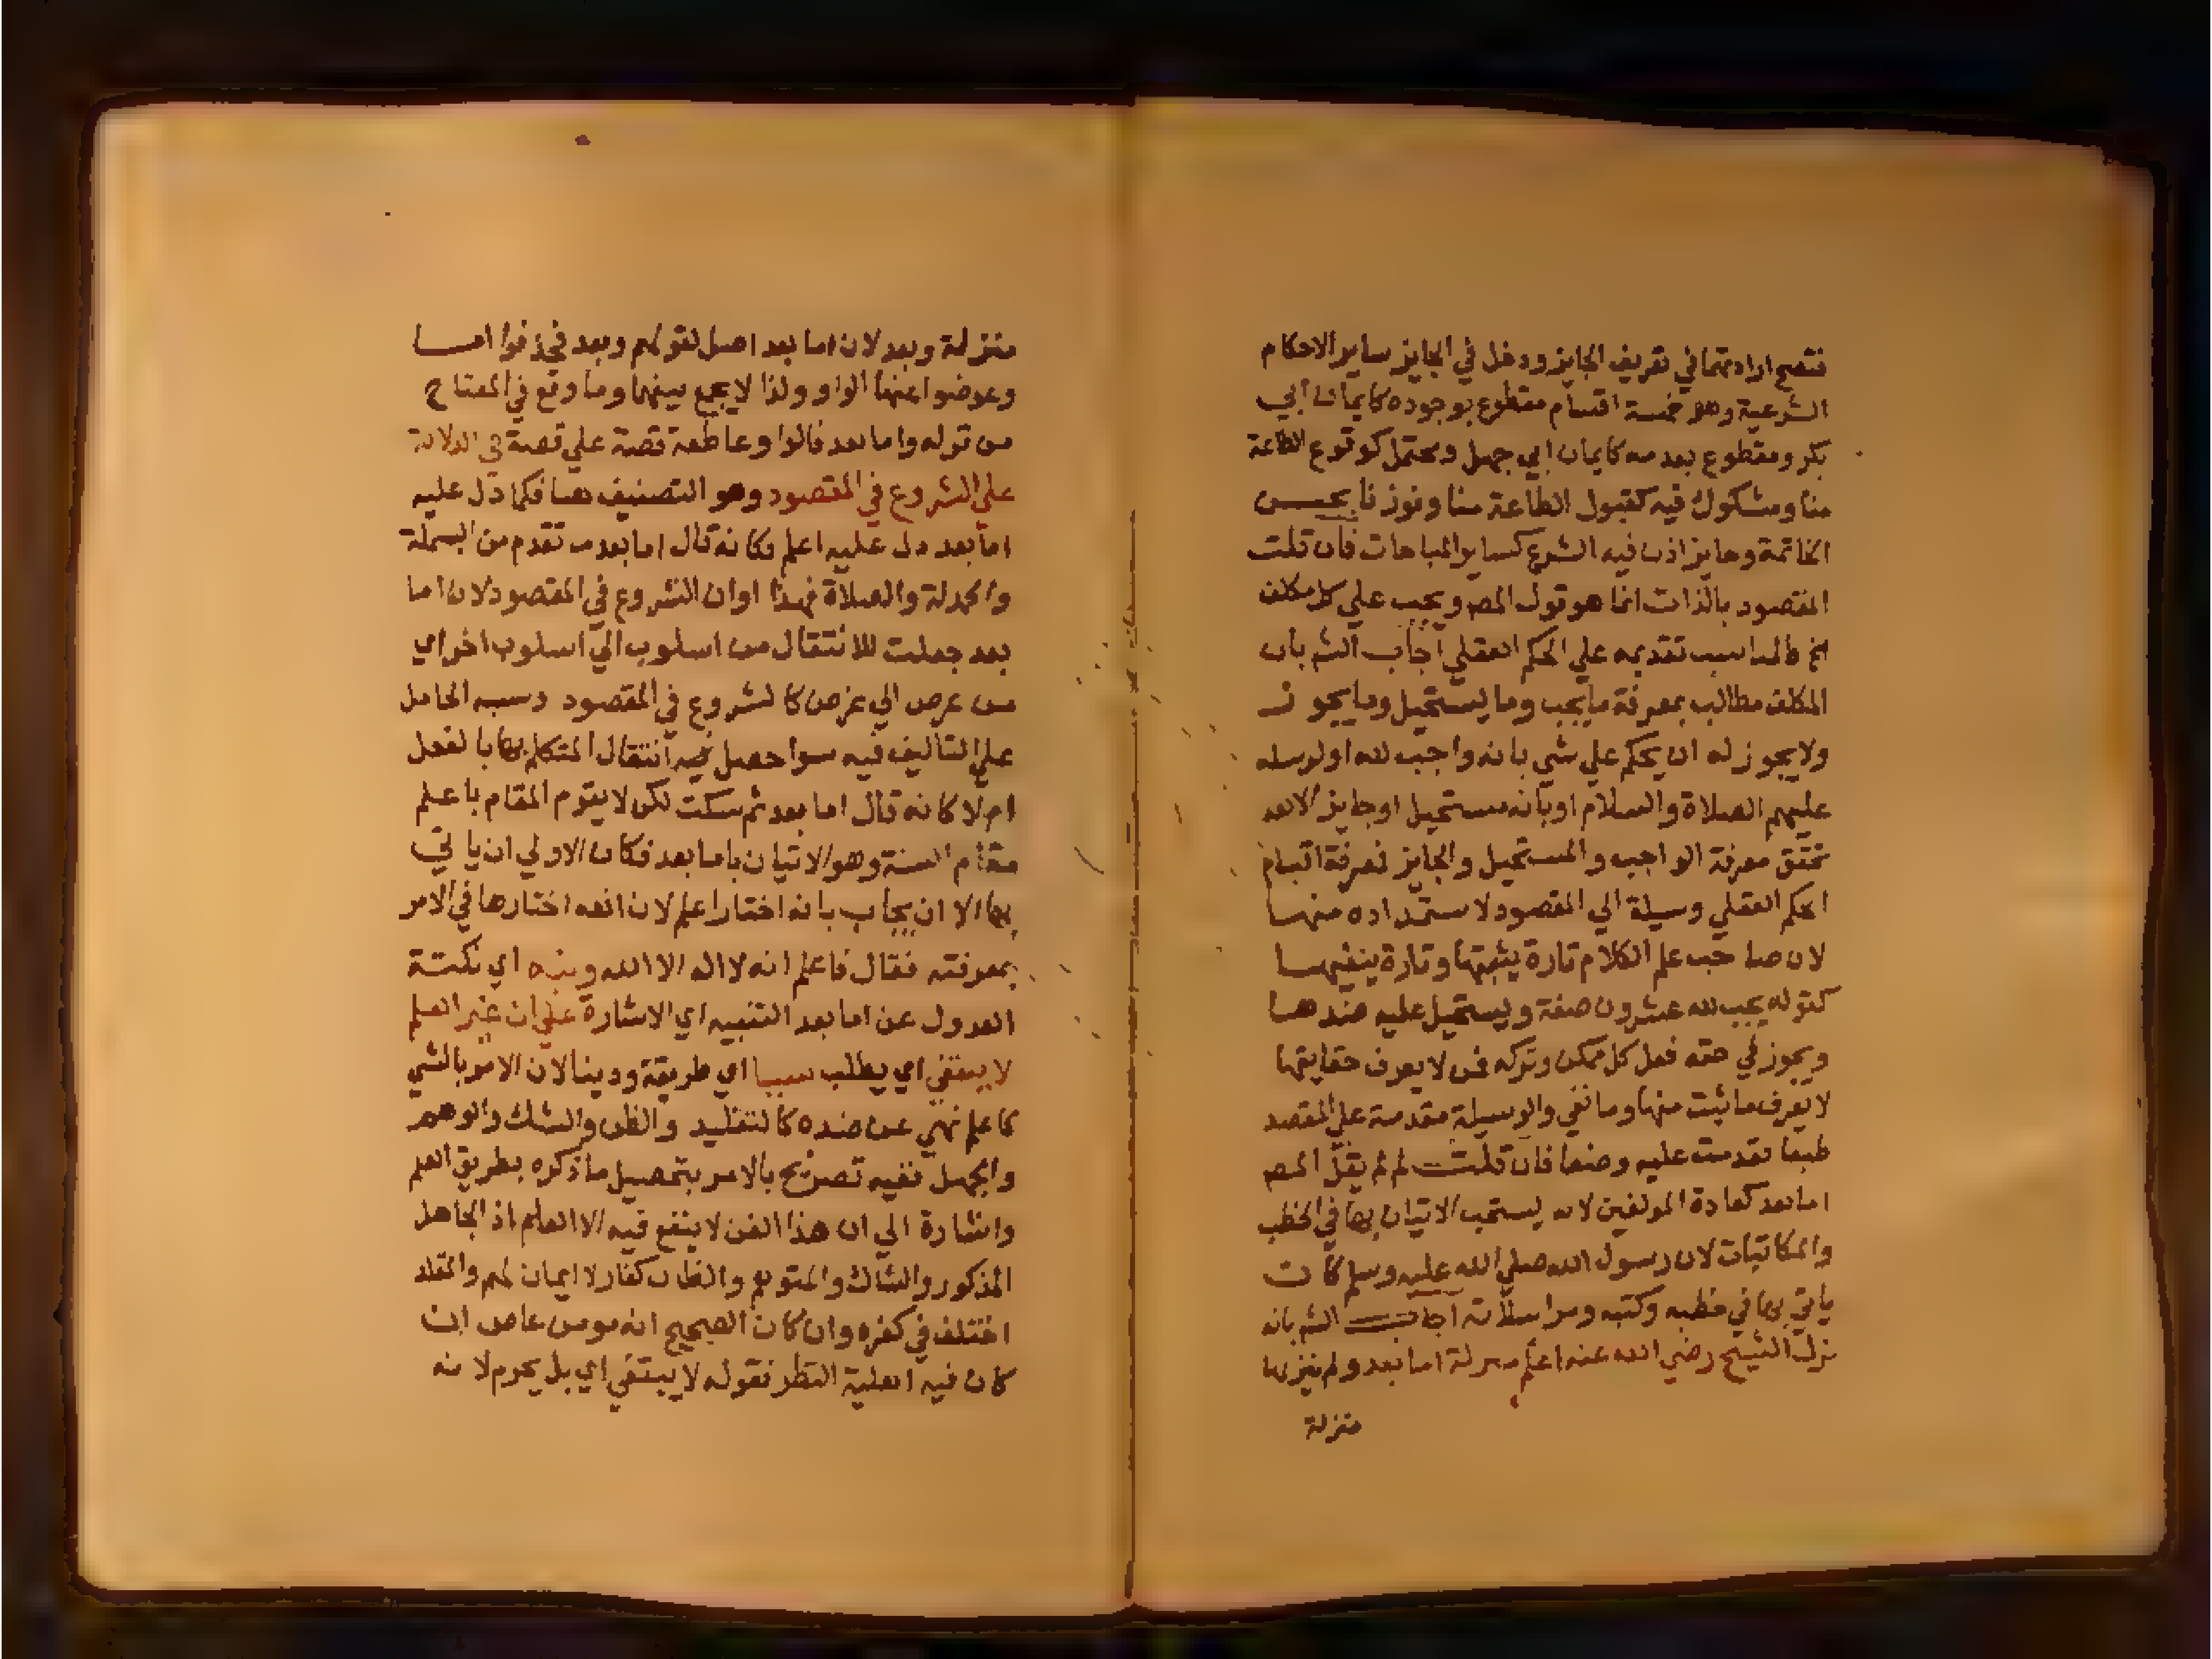 فتصح ارادتهما في تعريف الجايز ودخل في الجايز ساير الاحكام
الشرعية وهو خمسة اقسام مقطوع بوجوده كايمان ابي
بكر ومقطوع بعدمه كايمان ابي جهل ومحتمل كوقوع الطاعة
منا ومشكوك فيه كقبول الطاعة منا وفوزنا بحسن
الخاتمة وجايز اذن فيه الشرع كساير المباحات فان قلت
المقصود بالذات انما هو قول المص ويجب علي كل مكلف
الخ فالمناسب تقديمه علي الحكم العقلي اجاب الشم بان
المكلف مطالب بمعرفة ما يجب وما يستحيل وما يجوز
ولا يجوز له ان يحكم علي شي بانه واجب لله او لرسله
عليهم الصلاة والسلام او بانه مستحيل او جايز الا بعد
تحقق معرفة الواجب والمستحيل والجايز فمعرفة اقسام
الحكم العقلي وسيلة الي المقصود لاستمداده منها
لان صاحب علم الكلام تارة يثبتها وتارة ينفيها
كقوله يجب لله عشرون صفة ويستحيل عليه ضدها
ويجوز في حقه فعل كل ممكن وتركه فمن لا يعرف حقايقها
لا يعرف ما ثبت منها وما نفي والوسيلة مقدمة علي المقصد
طبعا فقدمت عليه وضعا فان قلت لم لم يقل المص
اما بعد كعادة المولفين لانه يستحب الاتيان بها في الخطب
والمكاتبات لان رسول الله صلي الله عليه وسلم كان
ياتي بها في خطبه وكتبه ومراسلاته اجاب الشم بانه
نزل الشيخ رضي الله عنه اعلم منزلة اما بعد ولم ينزلها
منزلة
منزلة وبعد لان اما بعد اصل لقولهم وبعد فحذفوا اما
وعوضوا عنها الواو ولذا لا يجمع بينهما وما وقع في المفتاح
من قوله واما بعد قالوا وعاطفة قصة علي قصة في الدلالة
علي الشروع في المقصود وهو التصنيف هنا فكما دل عليه
اما بعد دل عليه اعلم فكانه قال اما بعد ما تقدم من البسملة
والحمدلة والصلاة فهذا اوان الشروع في المقصود لان اما
بعد جعلت للانتقال من اسلوب الي اسلوب اخر اي
من غرض الي غرض كالشروع في المقصود وسببه الحامل
علي التاليف فيه سوا حصل فيه انتقال المتكلم بها بالفعل
ام لا كانه قال اما بعد ثم سكت لكن لا يقوم المقام باعلم
مقام السنة وهو الاتيان باما بعد فكان الاولي ان ياتي
بها الا ان يجاب بانه اختار اعلم لان الله اختارها في الامر
بمعرفته فقال فاعلم انه لا اله الا الله وينبه اي نكتة
العدول عن اما بعد التنبيه اي الاشارة علي ان غير العلم
لا يبتغي اي يطلب سببا اي طريقة ودينا لان الامر بالشي
كاعلم نهي عن ضده كالتقليد والظن والشك والوهم
والجهل ففيه تصريح بالامر بتحصيل ما ذكره بطريق العلم
واشارة الي ان هذا الفن لا ينفع فيه الا العلم اذ الجاهل
المذكور والشاك والمتوهم والظان كفار لا ايمان لهم والمقلد
اختلف في كفره وان كان الصحيح انه مومن عاص ان
كان فيه اهلية النظر فقوله لا يبتغي اي بل يحرم لانه